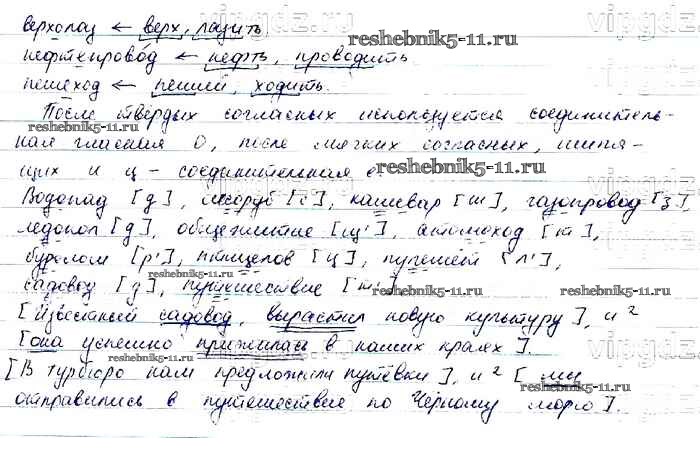 верхолаз ← верх, лазить
нефтепровод ← нефть, проводить
пешеход ← пеший, ходить.
После твердых согласных используется соединитель-
ная гласная О, после мягких согласных, шипя-
щих и ц – соединительная е
Водопад [д], лесоруб [с], кашевар [ш], газопровод [з],
ледокол [д], общежитие [щ'], атомоход [м],
бурелом [р'], птицелов [ц], пулемет [л'],
садовод [д], путешествие [т'].
[Известный садовод, вырастил новую культуру], и ²
[она успешно прижилась в наших краях].
[В турбюро нам предложили путевки], и ² [мы
отправились в путешествие по Черному морю].
vipgdz.ru
reshebnik5-11.ru